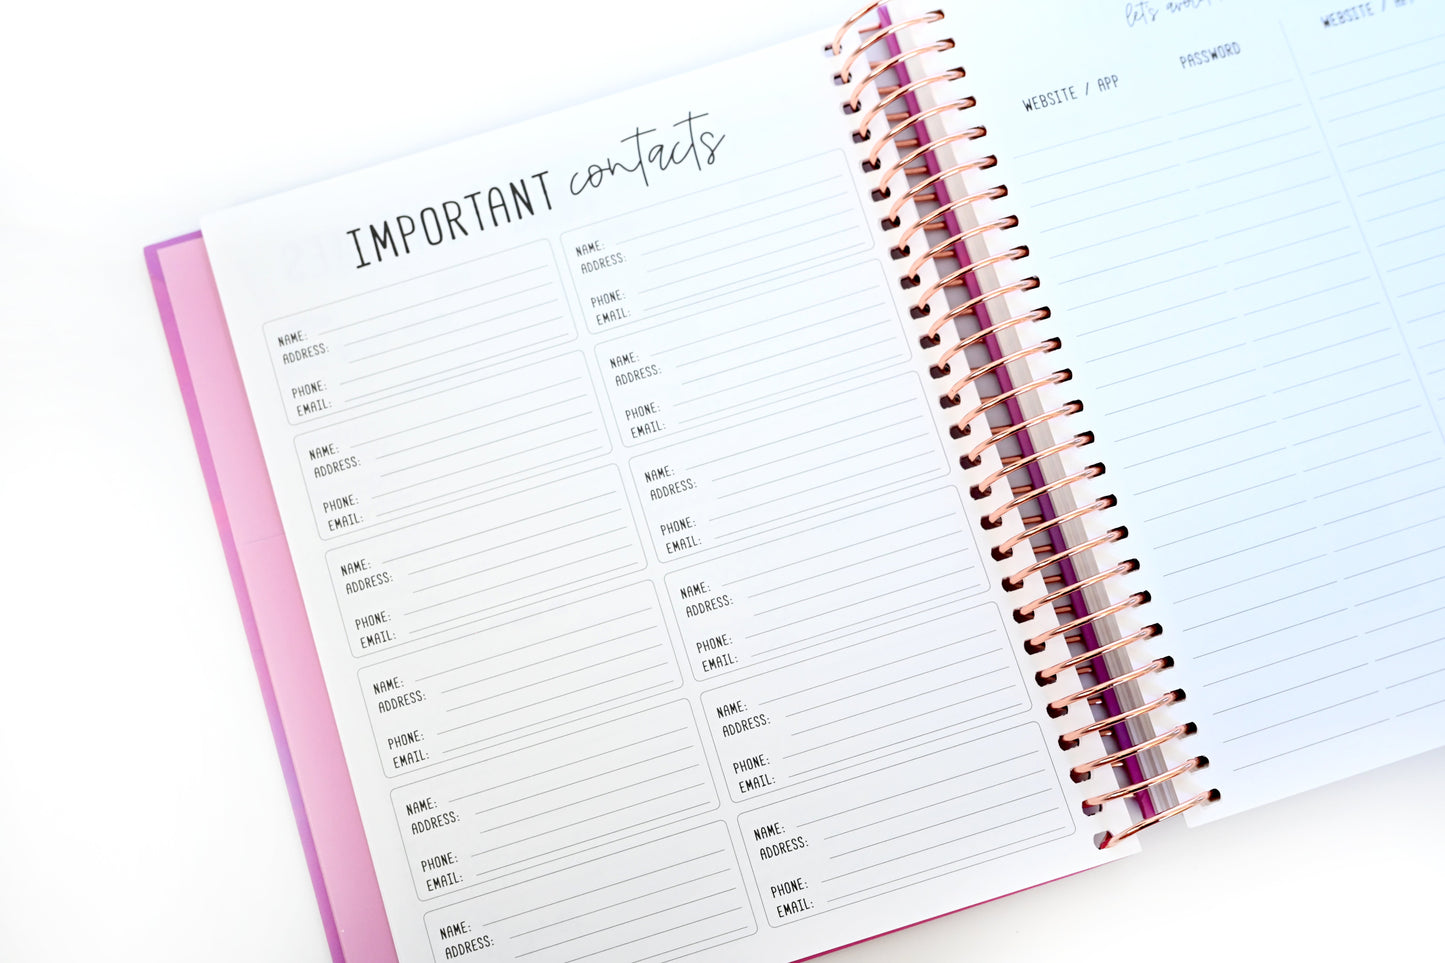 IMPORTANT contacts
NAME:
ADDRESS:
PHONE:
EMAIL:
NAME:
ADDRESS:
PHONE:
EMAIL:
NAME:
ADDRESS:
PHONE:
EMAIL:
NAME:
ADDRESS:
PHONE:
EMAIL:
NAME:
ADDRESS:
PHONE:
EMAIL:
NAME:
ADDRESS:
NAME:
ADDRESS:
PHONE:
EMAIL:
NAME:
ADDRESS:
PHONE:
EMAIL:
NAME:
ADDRESS:
PHONE:
EMAIL:
NAME:
ADDRESS:
PHONE:
EMAIL:
NAME:
ADDRESS:
PHONE:
EMAIL:
NAME:
ADDRESS:
PHONE:
EMAIL:
let's
WEBSITE / APP PASSWORD
WEBSITE /